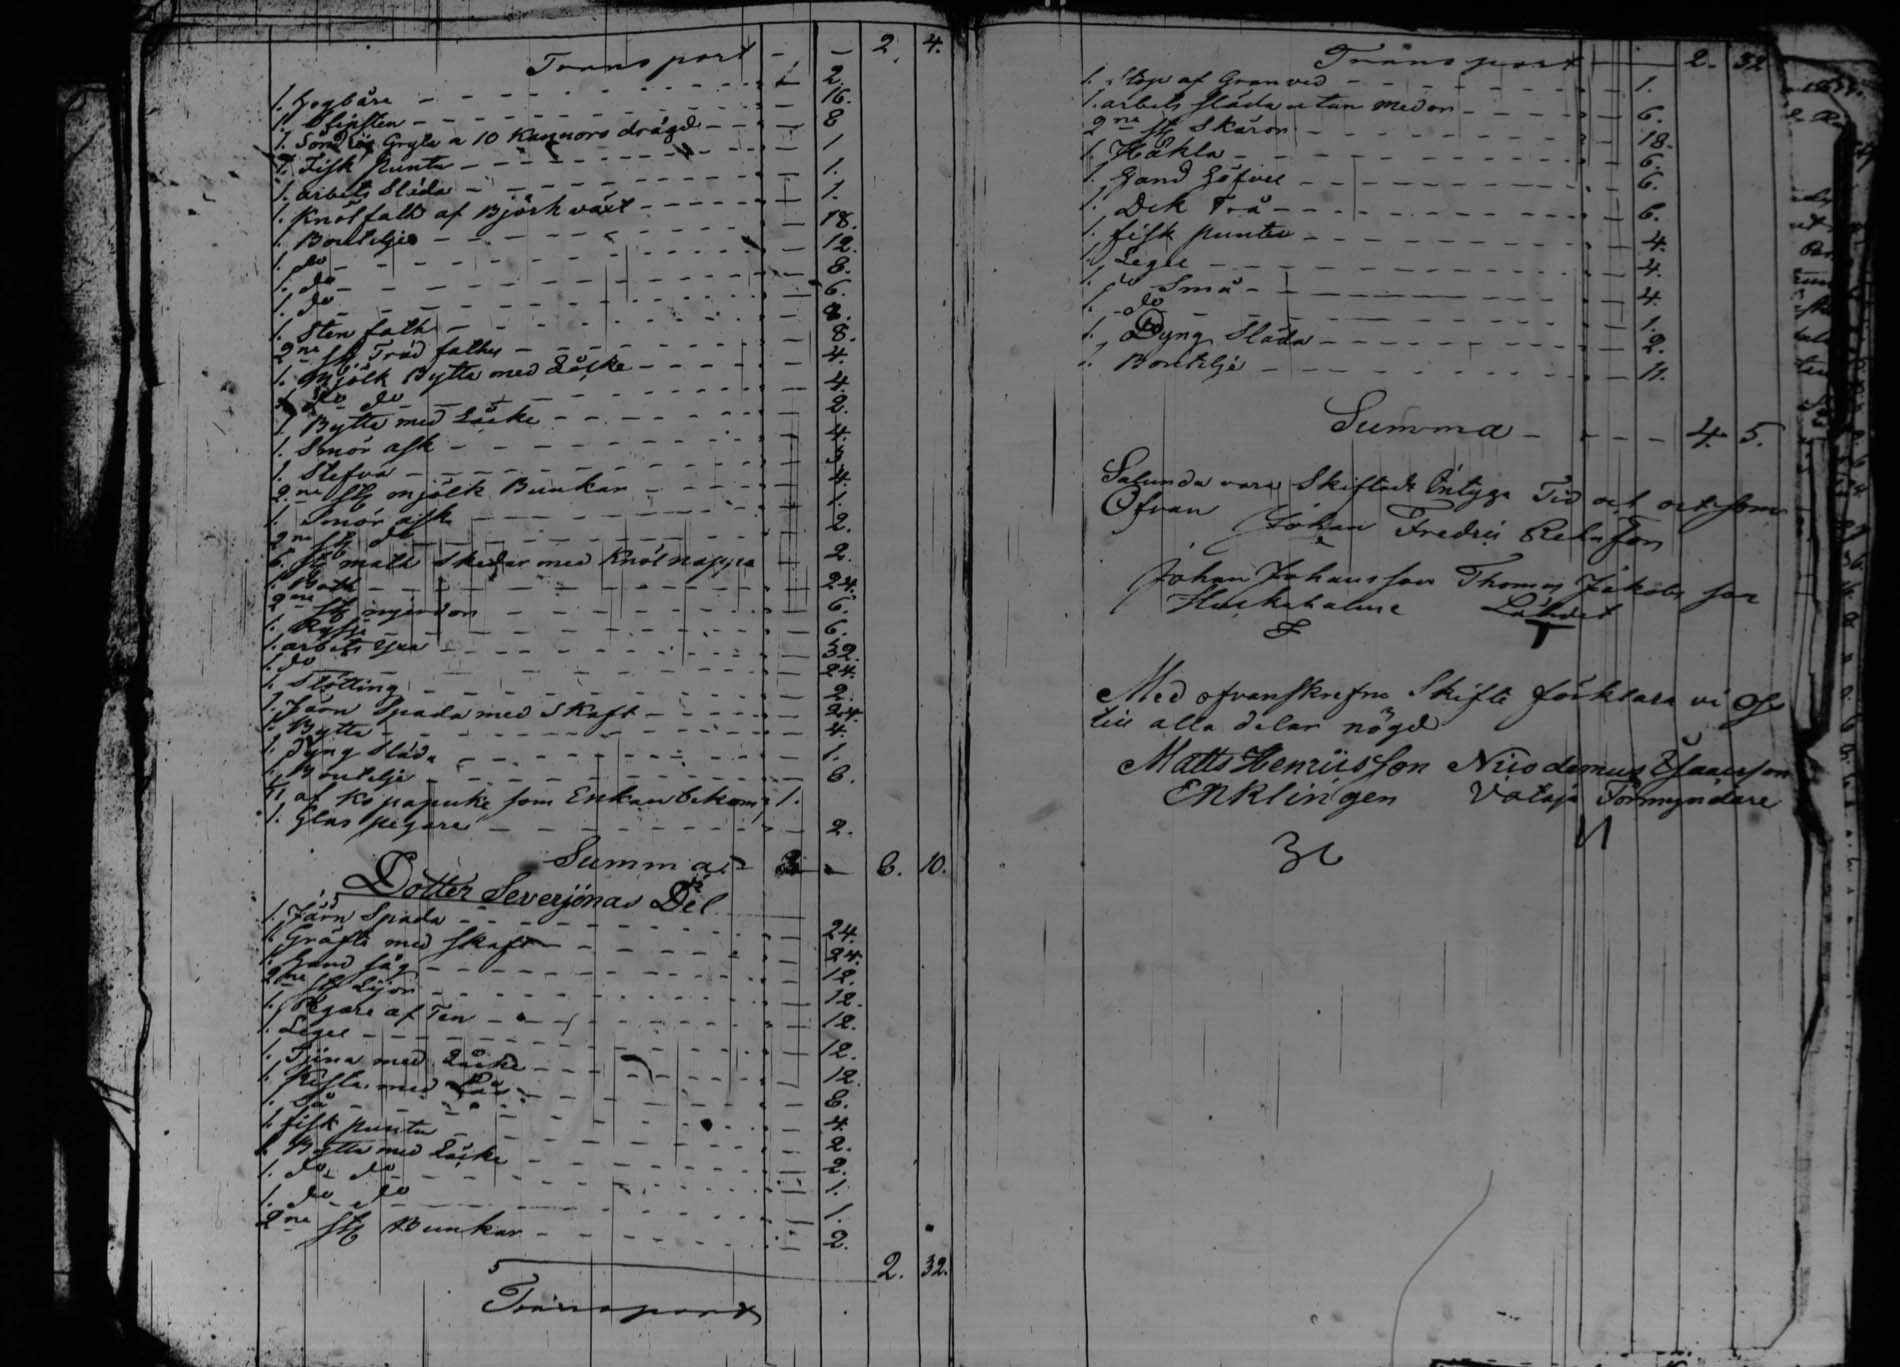 Transport - - 2. 4.
1. Högbåre - - 2.
1. Slipsten - - 16.
1. Söndrig Gryta a 10 Kannors drägd - - 8
1. Fisk Punta - - 1
1. arbets Släda - - 1.
1. Knölfalk af Björk växt - - 1.
1. Boutelje - - 18.
1. do - - 12.
1. do - - 8.
1. do - - 6.
1. Sten falk - - 8.
2ne st Träd falker - - 8.
1. Mjölk Bytta med Låcke - - 4.
1. do do - - 4.
1 Bytta med Låcke - - 2.
1. Smör ask - - 4.
1. Stefva - - 3
2ne st mjölk Bunkar - - 4.
1. Smör ask - - 1.
2ne st do - - 2.
6. st matt Skedar med Knölnappa - 2.
1. Balk - - 24.
2ne st - - 6.
1. Ryssje - - 6.
1. arbets yxa - - 32.
1. do - - 24.
1. Stötting - - 2.
1. Järn Spada med Skaft - - 24.
1. Bytta - - 4.
1. Dyng Släda - - 1.
1. Boutelje - - 6.
af som Enkan bekom 1.
1. Glas pegare - - 2.
Summa - 6. 10.
Dotter Severjönas Del
1. Järn Spada - - 24.
1. Gräfta med Skaft - - 24.
1. Hand såg - - 12.
2ne st Lijor - - 12.
1. Pegare af Ten - - 12.
1. Legel - - 12.
1. Tjina med Låcke - - 12.
1. Kista med - - 8.
1. Så - - 4.
1. fisk punta - - 2.
1. Bytta med Låcke - - 2.
1. do do - - 1.
1. do do - - 1.
2ne st Bunkar - - 2.
2. 32.
Transport
Transport - 2. 32
1. Stop af Granved - - 1.
1. arbets släda utan medor - - 6.
2ne st Skäror - - 18.
1. Häkla - - 6.
1. Hand Höfvel - - 6.
1. Dek Trå - - 6.
1. fisk punta - - 4.
1. Legel - - 4.
1. do Små - - 4.
1. do - - 1.
1. Dyng Släda - - 2.
1. Boutelje - - 11.
Summa - - - 4. 5.
Salunda vara Skiftadt Intyga Tid och ort som
Ofvan Johan Fredric
Johan Johansson Thomas Jakobsson
Med ofvanskrefne Skifte förklara vi Oss
till alla delar nögd
Matts Henricsson Nicodemus Isaacsson
Enklingen Förmyndare